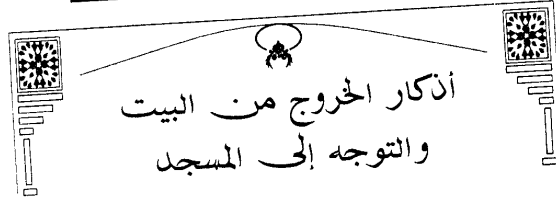 أذكار الخروج من البيت
والتوجه إلى المسجد